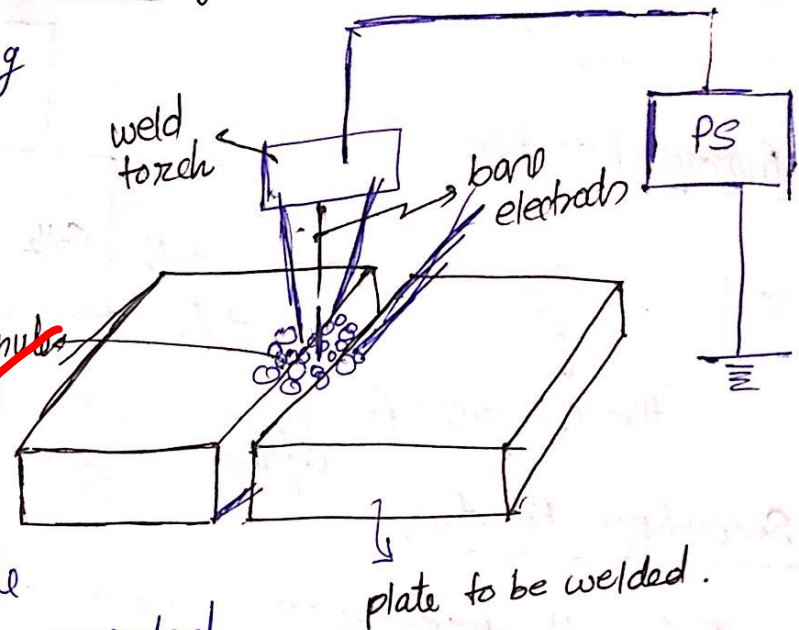 g
weld
torch
PS
bare
electrode
nules
e
plate to be welded.